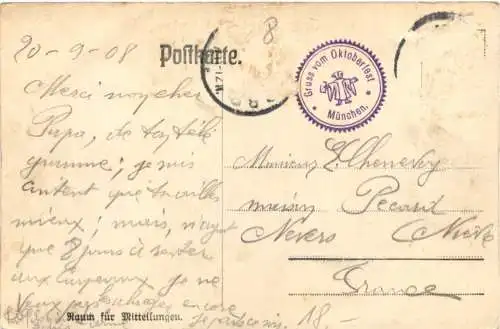 20-9-08
Postkarte.
8
Gruss vom Oktoberfest
München.
Merci mon cher
Papa, de ta télé
gramme; je suis
content que tu ailles
mieux; mais, n'ayant
que 8 jours à rester
aux je ne
veux pas encore
Raum für Mitteilungen.
Monsieur E.
maison Pecard
Nevers (Nièvre
France
18.-